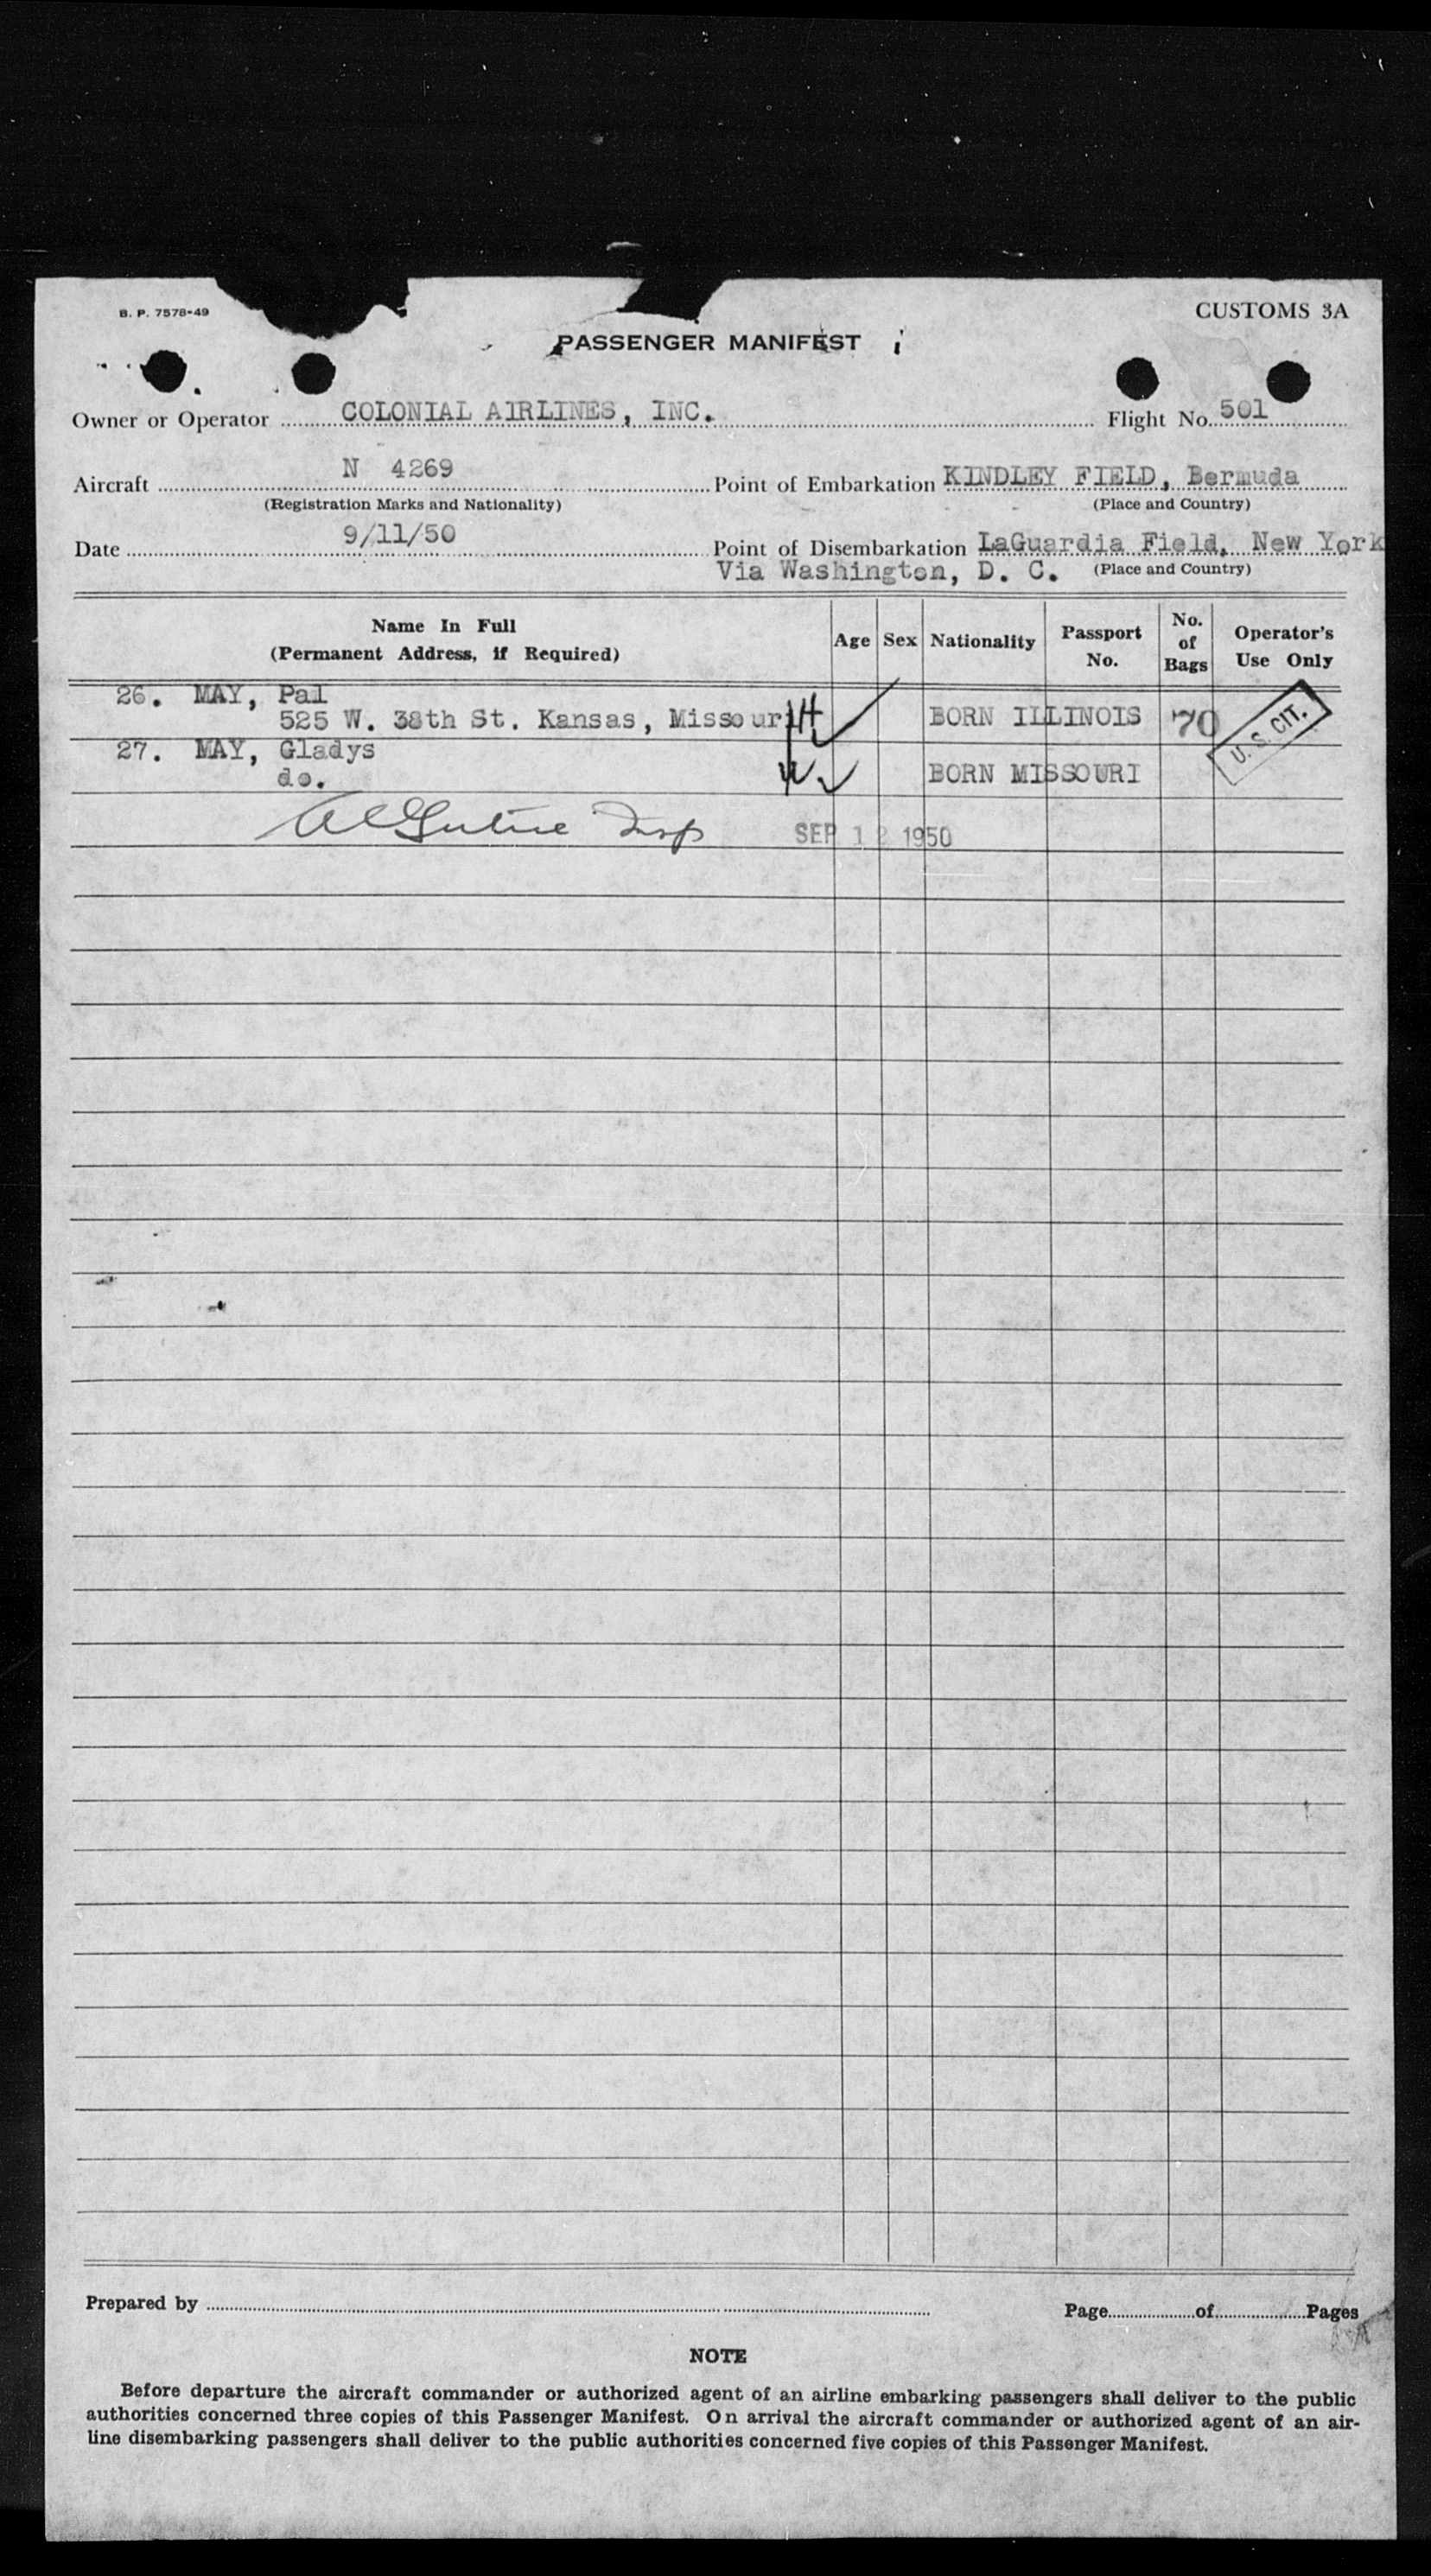 B. P. 7578-49
CUSTOMS 3A
PASSENGER MANIFEST
Owner or Operator COLONIAL AIRLINES, INC. Flight No. 501
Aircraft N 4269 Point of Embarkation KINDLEY FIELD, Bermuda
(Registration Marks and Nationality) (Place and Country)
Date 9/11/50 Point of Disembarkation LaGuardia Field, New York
Via Washington, D. C. (Place and Country)
Name In Full (Permanent Address, if Required) Age Sex Nationality Passport No. No. of Bags Operator's Use Only
26. MAY, Pal
525 W. 38th St. Kansas, Missouri BORN ILLINOIS 70 U. S. CIT.
27. MAY, Gladys
do. BORN MISSOURI
Insp SEP 12 1950
Prepared by Page of Pages
NOTE
Before departure the aircraft commander or authorized agent of an airline embarking passengers shall deliver to the public
authorities concerned three copies of this Passenger Manifest. On arrival the aircraft commander or authorized agent of an air-
line disembarking passengers shall deliver to the public authorities concerned five copies of this Passenger Manifest.